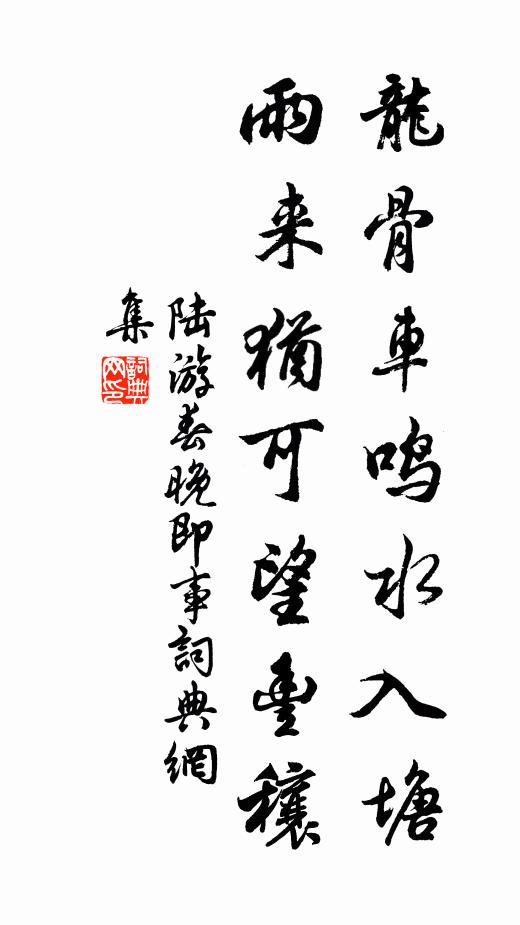 龍骨車鸣水入塘
雨来猶可望豊穰
陆游春晚即事詞典網
集
詞典
网印